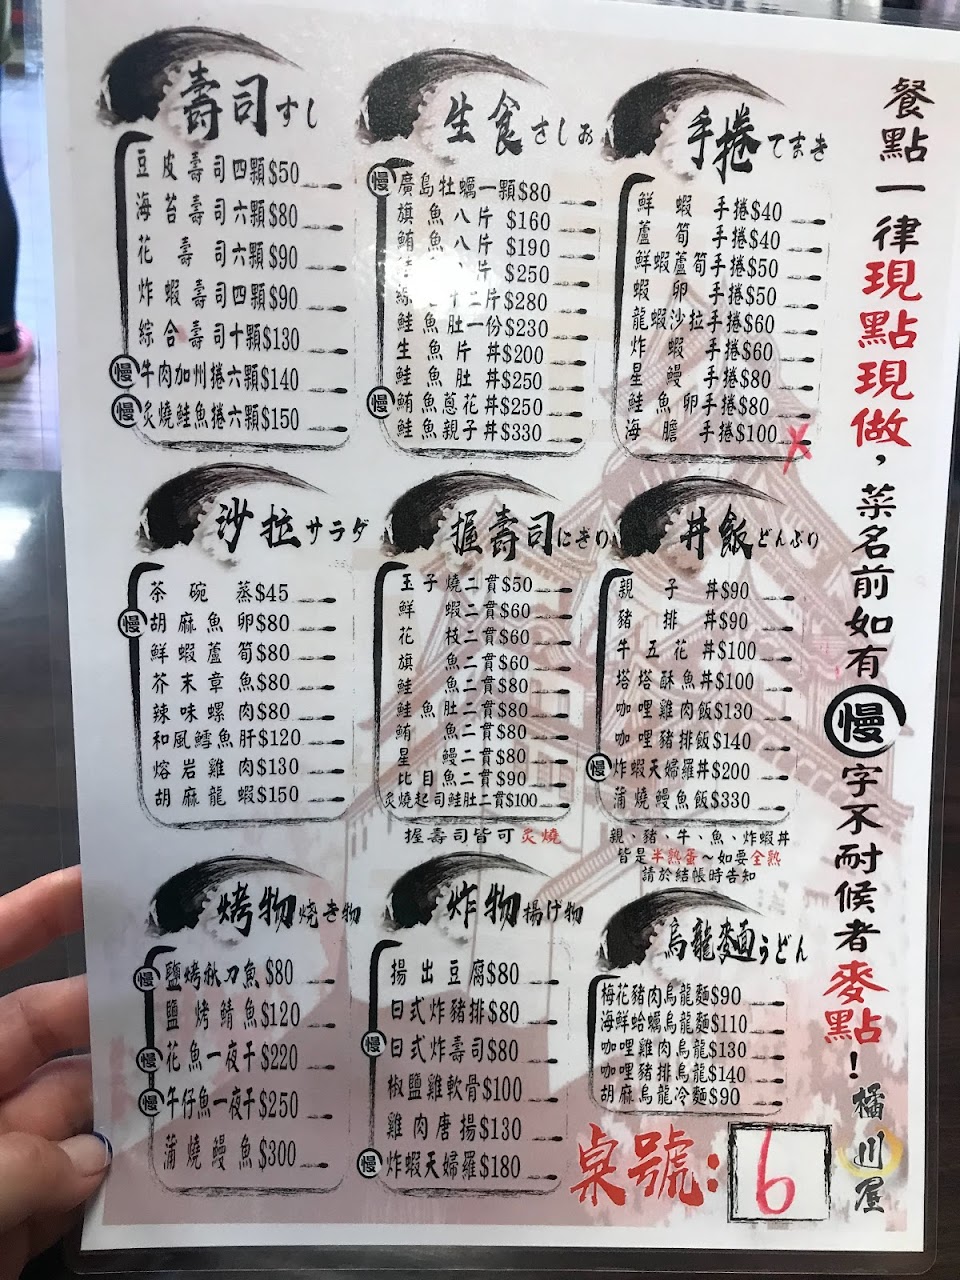 壽司すし
豆皮壽司四顆$50
海苔壽司六顆$80
花壽司六顆$90
炸蝦壽司四顆$90
綜合壽司十顆$130
慢 牛肉加州捲六顆$140
慢 炙燒鮭魚捲六顆$150
生食さしみ
慢 廣島牡蠣一顆$80
旗魚八片 $160
鮪魚八片 $190
片 $250
二片$280
鮭魚肚一份$230
生魚片丼$200
鮭魚肚丼$250
慢 鮪魚蔥花丼$250
鮭魚親子丼$330
手捲てまき
鮮蝦手捲$40
蘆筍手捲$40
鮮蝦蘆筍手捲$50
蝦卵手捲$50
龍蝦沙拉手捲$60
炸蝦手捲$60
星鰻手捲$80
鮭魚卵手捲$80
海膽手捲$100 X
沙拉サラダ
茶碗蒸$45
慢 胡麻魚卵$80
鮮蝦蘆筍$80
芥末章魚$80
辣味螺肉$80
和風鱈魚肝$120
熔岩雞肉$130
胡麻龍蝦$150
握壽司にぎり
玉子燒二貫$50
鮮蝦二貫$60
花枝二貫$60
旗魚二貫$60
鮭魚二貫$80
鮭魚肚二貫$80
鮪魚二貫$80
星鰻二貫$80
比目魚二貫$90
炙燒起司鮭肚二貫$100
握壽司皆可炙燒
丼飯どんぶり
親子丼$90
豬排丼$90
牛五花丼$100
塔塔酥魚丼$100
咖哩雞肉飯$130
咖哩豬排飯$140
慢 炸蝦天婦羅丼$200
蒲燒鰻魚飯$330
親、豬、牛、魚、炸蝦丼
皆是半熟蛋~如要全熟
請於結帳時告知
烤物焼き物
慢 鹽烤秋刀魚$80
鹽烤鯖魚$120
慢 花魚一夜干$220
慢 午仔魚一夜干$250
蒲燒鰻魚$300
炸物揚げ物
揚出豆腐$80
日式炸豬排$80
慢 日式炸壽司$80
椒鹽雞軟骨$100
雞肉唐揚$130
慢 炸蝦天婦羅$180
烏龍麵うどん
梅花豬肉烏龍麵$90
海鮮蛤蠣烏龍麵$110
咖哩雞肉烏龍$130
咖哩豬排烏龍$140
胡麻烏龍冷麵$90
桌號:6
餐點一律現點現做,菜名前如有慢字不耐候者麥點!
橘川屋